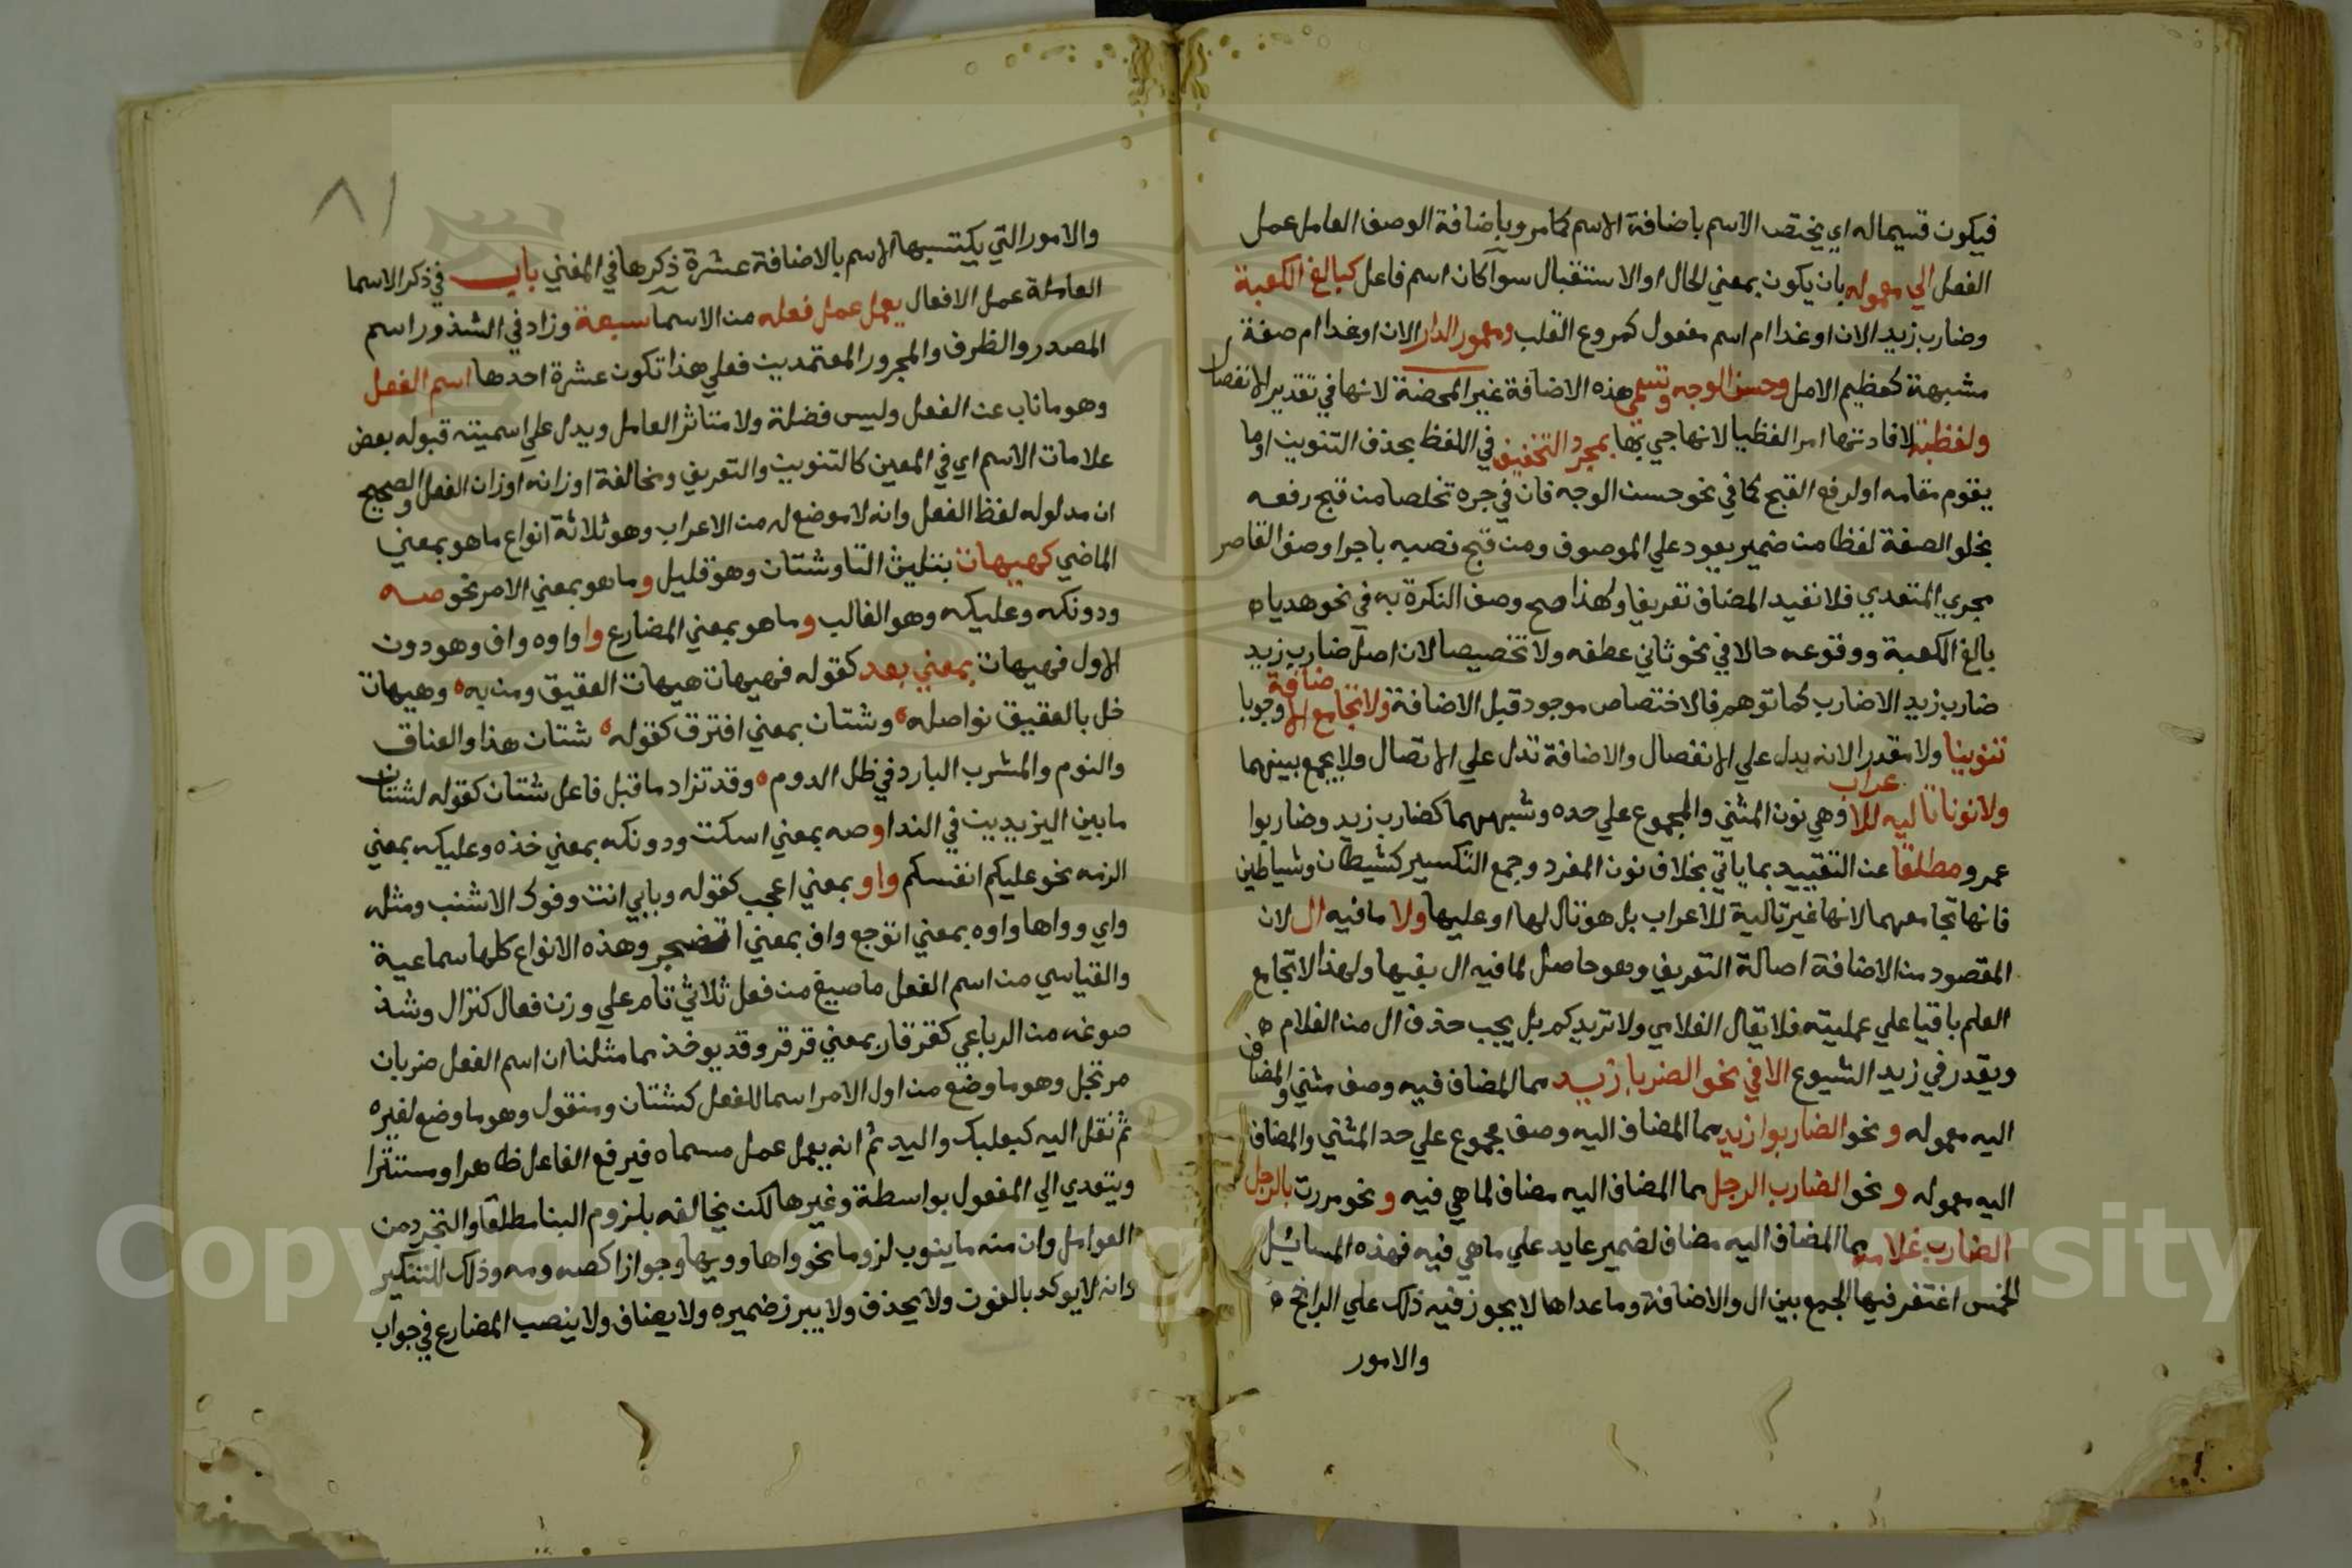 فيكون قسيما له اي يختص الاسم باضافة الاسم كما مر وباضافة الوصف العامل عمل
الفعل الي معموله بان يكون بمعني الحال او الاستقبال سوآ كان اسم فاعل كبالغ الكعبة
وضارب زيد الان او غدا ام اسم مفعول كمروع القلب ومعمور الدار الان او غدا ام صفة
مشبهة كعظيم الامل وحسن الوجه وتسمي هذه الاضافة غير المحضة لانها في تقدير الانفصال
ولفظية لافادتها امرا لفظيا لانها جي بها بمجرد التخفيف في اللفظ بحذف التنوين او ما
يقوم مقامه او لرفع القبح كما في نحو حسن الوجه فان في جره تخلصا من قبح رفعه
بخلو الصفة لفظا من ضمير يعود علي الموصوف ومن قبح نصبه باجرا وصف القاصر
مجري المتعدي فلا تفيد المضاف تعريفا ولهذا صح وصف النكرة به في نحو هديا
بالغ الكعبة ووقوعه حالا في نحو ثاني عطفه ولا تخصيصا لان اصل ضارب زيد
ضارب زيد الاضارب كما توهم فالاختصاص موجود قبل الاضافة ولا تجامع الاضافة وجوبا
تنوينا ولا مقدرا لانه يدل علي الانفصال والاضافة تدل علي الاتصال ولا يجمع بينهما
ولا نونا تاليه للاعراب وهي نون المثني والمجموع علي حده وشبههما كضارب زيد وضاربوا
عمرو مطلقا عن التقييد بما ياتي بخلاف نون المفرد وجمع التكسير كشيطان وشياطين
فانها تجامعهما لانها غير تالية للاعراب بل هو تال لها او عليها ولا ما فيه ال لان
المقصود من الاضافة اصالة التعريف وهو حاصل لما فيه ال بغيها ولهذا لا تجامع
العلم باقيا علي علميته فلا يقال الغلامي ولا تزيدكم بل يجب حذف ال من الغلام
ويقدر في زيد الشيوع الا في نحو الضربا زيد مما المضاف فيه وصف مثني والمضاف
اليه معموله و نحو الضاربوا زيد مما المضاف اليه وصف مجموع علي حد المثني والمضاف
اليه معموله و نحو الضارب الرجل مما المضاف اليه مضاف لما هي فيه و نحو مررت بالرجل
الضارب غلامه مما المضاف اليه مضاف لضمير عايد علي ما هي فيه فهذه المسائل
الخمس اغتفر فيها الجمع بين ال والاضافة وما عداها لا يجوز فيه ذلك علي الراجح
والامور
٨١
والامور التي يكتسبها الاسم بالاضافة عشرة ذكرها في المغني باب في ذكر الاسما
العاملة عمل الافعال يعمل عمل فعله من الاسما سبعة وزاد في الشذور اسم
المصدر والظرف والمجرور المعتمدين فعلي هذا تكون عشرة احدها اسم الفعل
وهو ما ناب عن الفعل وليس فضلة ولا متاثر العامل ويدل علي اسميته قبوله بعض
علامات الاسم اي في المعين كالتنوين والتعريف ومخالفة اوزانه اوزان الفعل والصحيح
ان مدلوله لفظ الفعل وانه لا موضع له من الاعراب وهو ثلاثة انواع ما هو بمعني
الماضي كهيهات بتثليث التا وشتان وهو قليل و ما هو بمعني الامر نحو صه
ودونكه وعليكه وهو الغالب و ما هو بمعني المضارع وا واوه واف وهو دون
الاول فهيهات بمعني بعد كقوله فهيهات هيهات العقيق ومن به وهيهات
خل بالعقيق نواصله وشتان بمعني افترق كقوله شتان هذا والعناق
والنوم والمشرب البارد في ظل الدوم وقد تزاد ما قبل فاعل شتان كقوله لشتان
ما بين اليزيدين في الندا وصه بمعني اسكت ودونكه بمعني خذه وعليكه بمعني
الزمه نحو عليكم انفسكم واو بمعني اعجب كقوله وبابي انت وفوك الاشنب ومثله
واي وواها واوه بمعني اتوجع واف بمعني اتضجر وهذه الانواع كلها سماعية
والقياسي من اسم الفعل ما صيغ من فعل ثلاثي تام علي وزن فعال كنزال وشذ
صوغه من الرباعي كقرقار بمعني قرقر وقد يوخذ مما مثلنا ان اسم الفعل ضربان
مرتجل وهو ما وضع من اول الامر اسما للفعل كشتان ومنقول وهو ما وضع لغيره
ثم نقل اليه كبعلبك واليد ثم انه يعمل عمل مسماه فيرفع الفاعل ظاهرا ومستترا
ويتعدي الي المفعول بواسطة وغيرها لكن يخالفه بلزوم البنا مطلقا والتجرد من
العوامل وان منه ما ينوب لزوما نحو واها وويها وجوازا كصه ومه وذلك للتنكير
وانه لا يوكد بالنون ولا يحذف ولا يبرز ضميره ولا يضاف ولا ينصب المضارع في جواب
Copyright © King Saud University